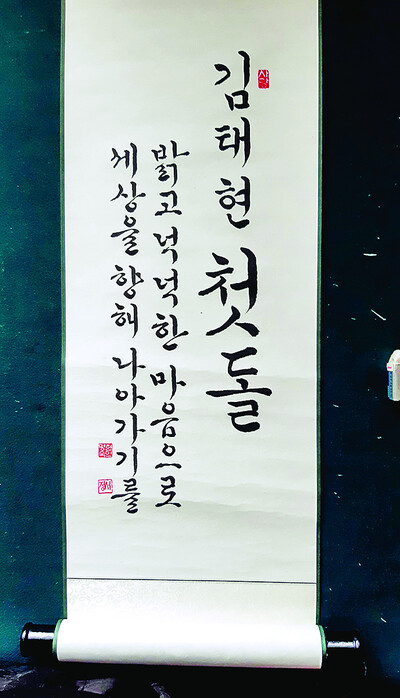 김태현 첫돌
밝고 넉넉한 마음으로
세상을 향해 나아가기를